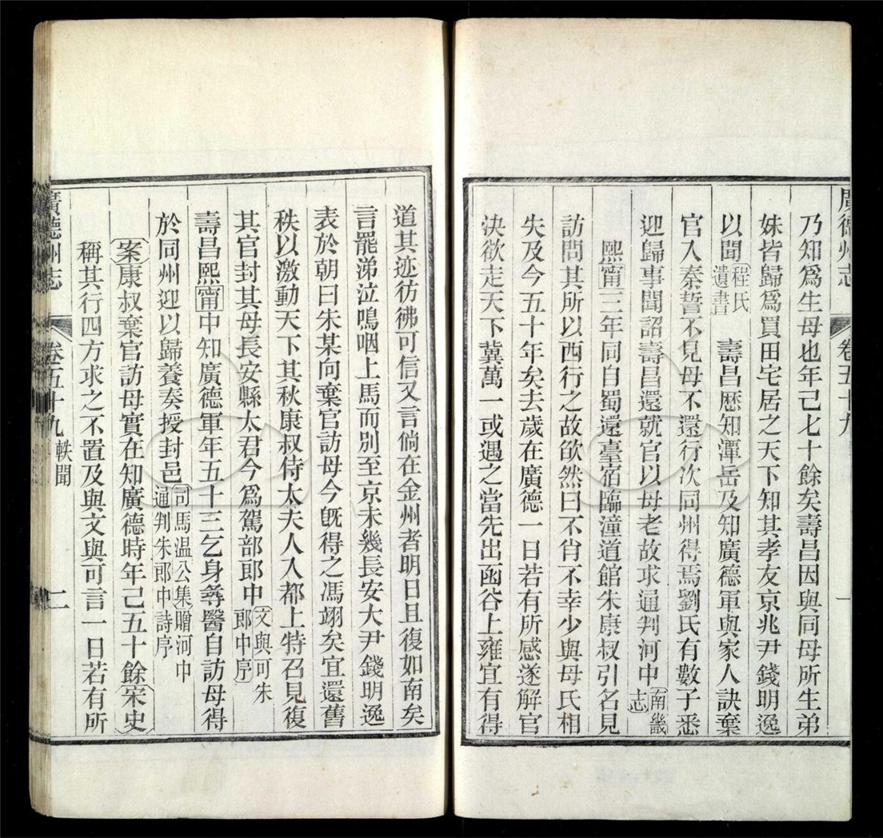 廣德州志
卷五十九
乃知爲生母也年已七十餘矣壽昌因與同母所生弟
妹皆歸爲買田宅居之天下知其孝友京兆尹錢明逸
以聞程氏遺書 壽昌歷知潭岳及知廣德軍與家人訣棄
官入秦誓不見母不還行次同州得焉劉氏有數子悉
迎歸事聞詔壽昌還就官以母老故求通判河中南畿志
熙甯三年同自蜀還臺宿臨潼道館朱康叔引名見
訪問其所以西行之故欿然曰不肖不幸少與母氏相
失及今五十年矣去歲在廣德一日若有所感遂解官
決欲走天下冀萬一或遇之當先出函谷上雍宜有得
道其迹彷彿可信又言倘在金州者明日且復如南矣
言罷涕泣鳴咽上馬而別至京未幾長安大尹錢明逸
表於朝曰朱某向棄官訪母今旣得之馮翊矣宜還舊
秩以激動天下其秋康叔侍太夫人入都上特召見復
其官封其母長安縣太君今爲駕部郎中文與可朱郎中序
壽昌熙甯中知廣德軍年五十三乞身尋醫自訪母得
於同州迎以歸養奏授封邑司馬溫公集贈河中通判朱郎中詩序
案康叔棄官訪母實在知廣德時年已五十餘宋史
稱其行四方求之不置及與文與可言一日若有所
廣德州志
卷五十九
軼聞
二